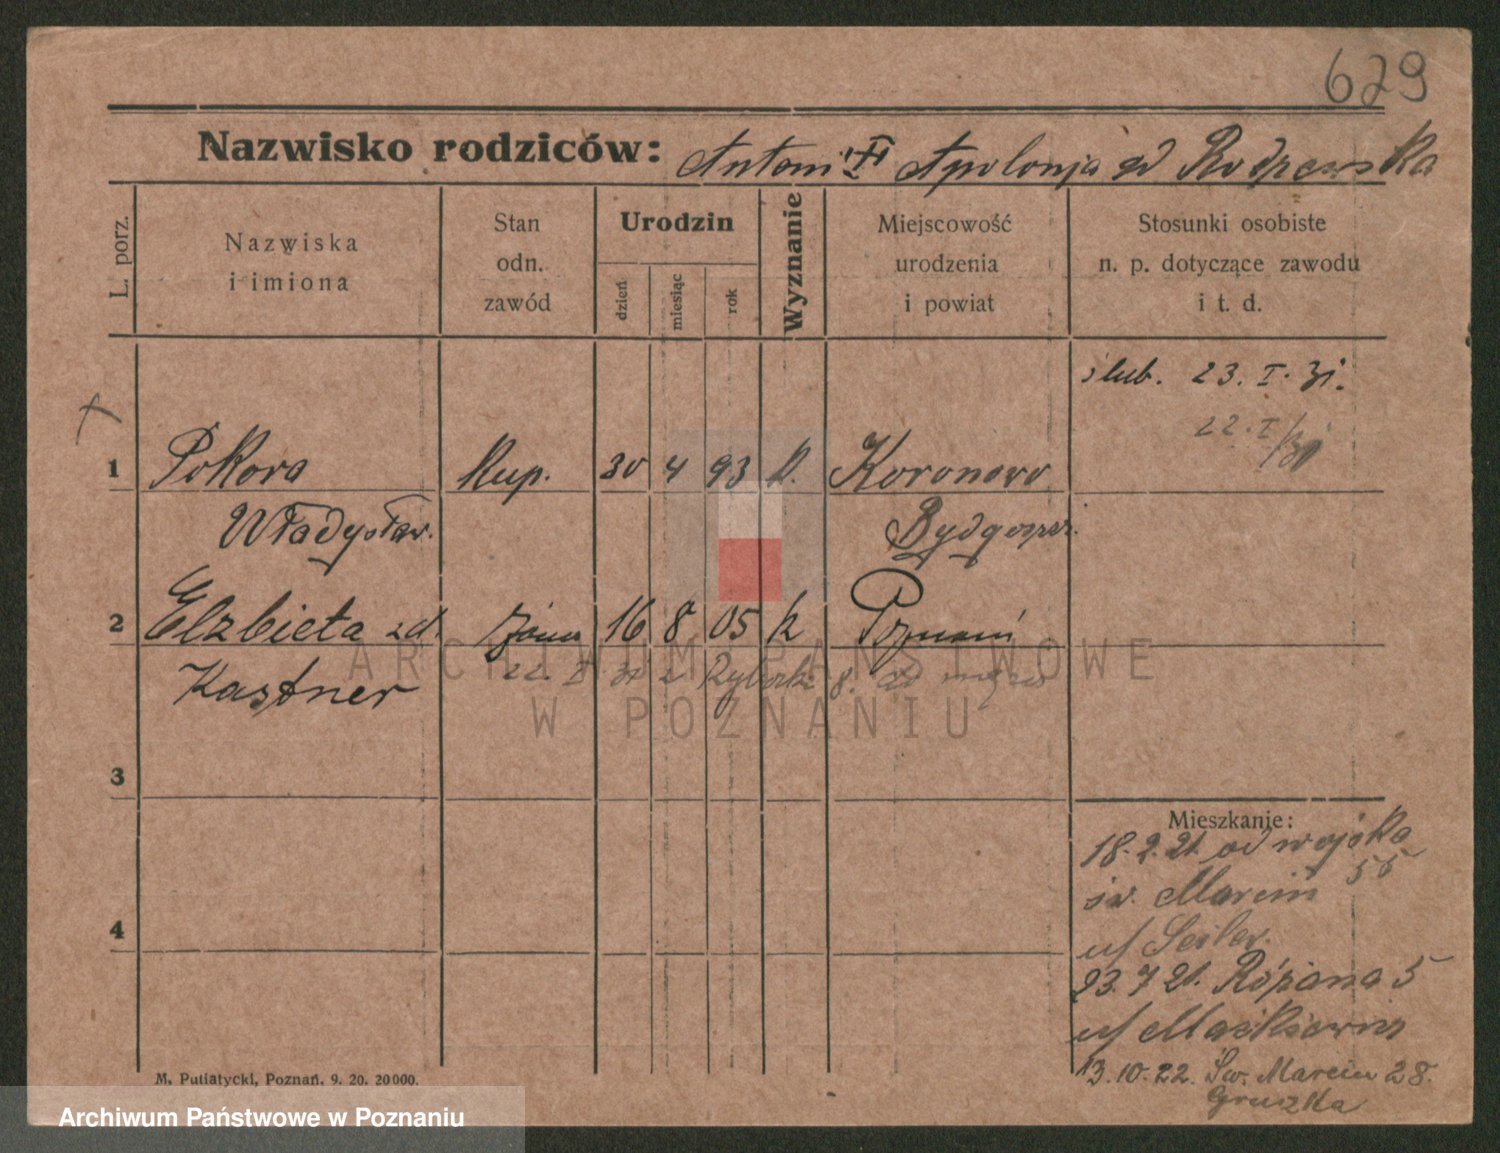 629
Nazwisko rodziców: Antoni Apolonja
L. porz.
Nazwiska
i imiona
Stan
odn.
zawód
Urodzin
dzień
miesiąc
rok
Wyznanie
Miejscowość
urodzenia
i powiat
Stosunki osobiste
n. p. dotyczące zawodu
i t. d.
ślub. 23. I. 31.
22. I/31
1 Pokora Kup. 30 4 93 k. Koronowo
Władysław. Bydgoszcz.
2 Elzbieta zd. żona 16 8 05 k Poznań
Kastner 22. I 31 z 8. do męża
3
4
Mieszkanie:
18.2.21. od wojska
św. Marcin 55
u/ Seiler.
23.7.21. Różana 5
u/
13.10.22. Św. Marcin 28.
Gruszka
M. Putiatycki, Poznań. 9. 20. 20000.
ARCHIWUM PAŃSTWOWE
W POZNANIU
Archiwum Państwowe w Poznaniu